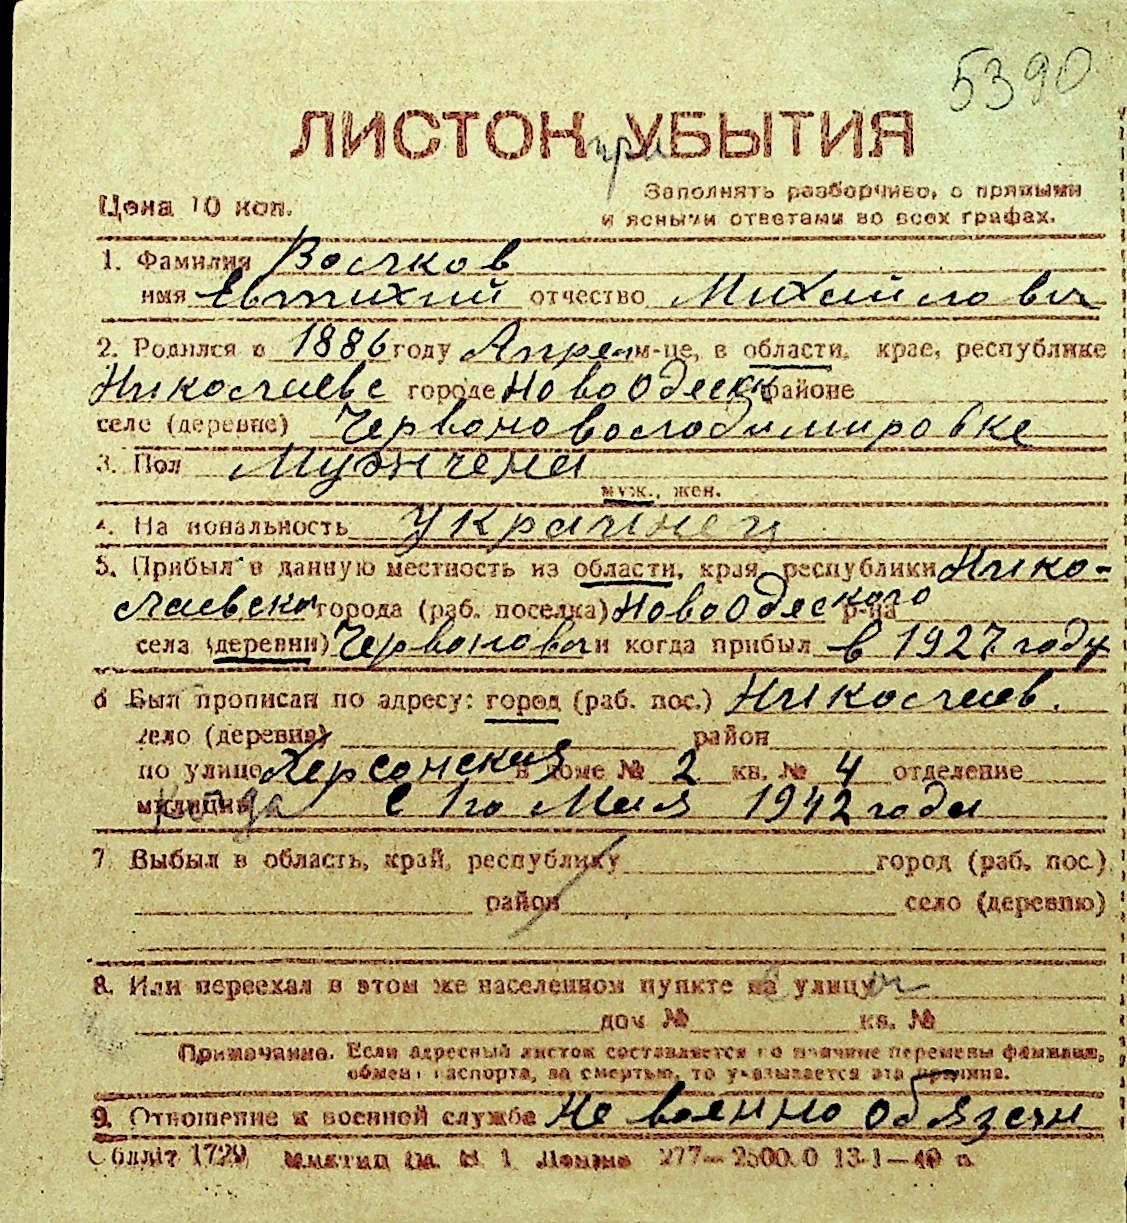 5390
ЛИСТОК при УБЫТИЯ
Цена 10 коп.
Заполнять разборчиво, с прямыми
и ясными ответами во всех графах.
1. Фамилия Волков
имя Евтихий отчество Михайлович
2. Родился в 1886 году Апрел м-це, в области, крае, республике
Николаеве городе Ново Одесск районе
селе (деревне) Червоноволодимировке
3. Пол Мужчена
муж., жен.
4. Национальность Украинец
5. Прибыл в данную местность из области, края, республики Нико-
лаевской города (раб. поселка) Ново Одеского р-на
села (деревни) Червоновол и когда прибыл в 1927 году
6 Был прописан по адресу: город (раб. пос.) Николаев.
село (деревня) район
по улице Херсонская в доме № 2 кв. № 4 отделение
милиции когда с 1го Мая 1942 года
7 Выбыл в область, край, республику город (раб. пос.)
район село (деревню)
8. Или переехал в этом же населенном пункте на улицу
дом № кв. №
Примечание. Если адресный листок составляется по причине перемены фамилии,
обмена паспорта, за смертью, то указывается эта причина.
9. Отношение к военной службе Не военно обязан
Обллит 1729 1 277— 13-1—40 г.